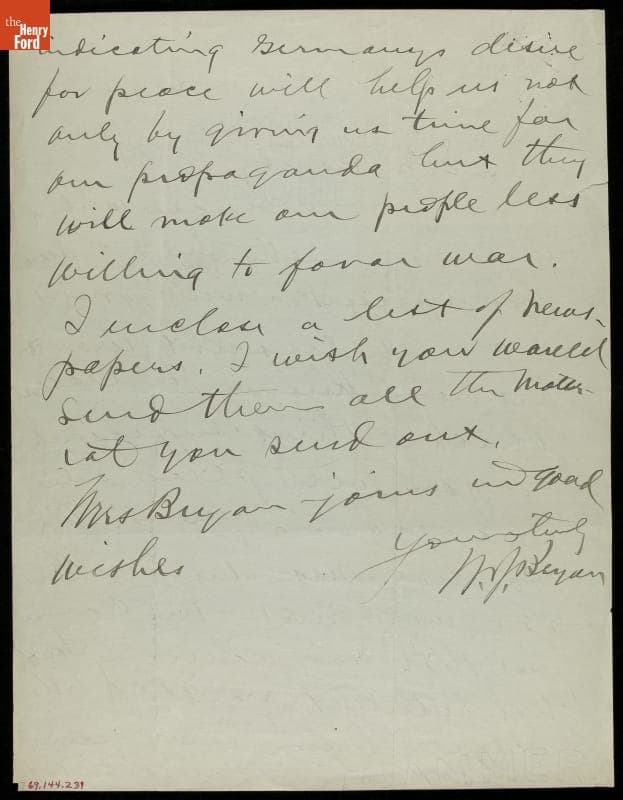 the
Henry
Ford
indicating Germany's desire
for peace will help us not
only by giving us time for
our propaganda but they
will make our people less
willing to favor war.
I enclose a list of news-
papers. I wish you would
send them all the mater-
ial you send out.
Mrs Bryan joins in good
wishes
Yours truly
W. J. Bryan
69.144.239